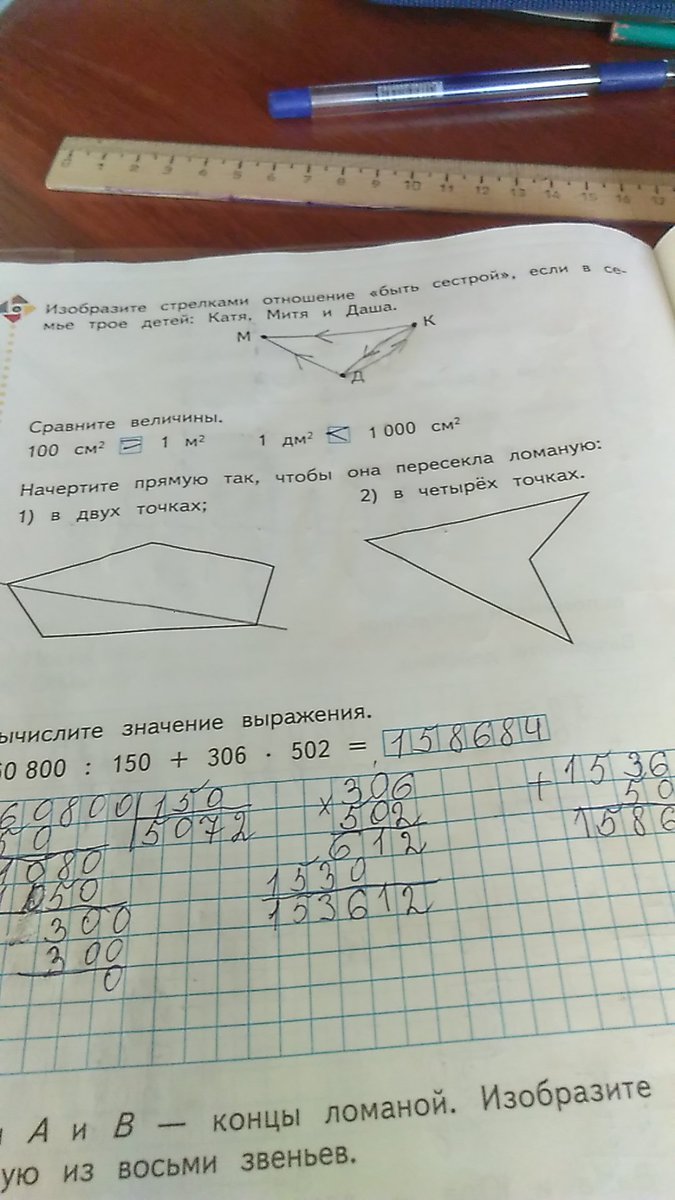 0 1 2 3 4 5 6 7 8 9 10 11 12 13 14 15 16 17
6 Изобразите стрелками отношение «быть сестрой», если в се-
мье трое детей: Катя, Митя и Даша.
М К
Д
Сравните величины.
100 см² = 1 м² 1 дм² < 1 000 см²
Начертите прямую так, чтобы она пересекла ломаную:
1) в двух точках; 2) в четырёх точках.
ычислите значение выражения.
60 800 : 150 + 306 · 502 = 158684
60800 150 × 306 + 1536
50 5072 502 50
1080 612 1586
1050 1530
- 300 153612
300
0
А и В — концы ломаной. Изобразите
ую из восьми звеньев.